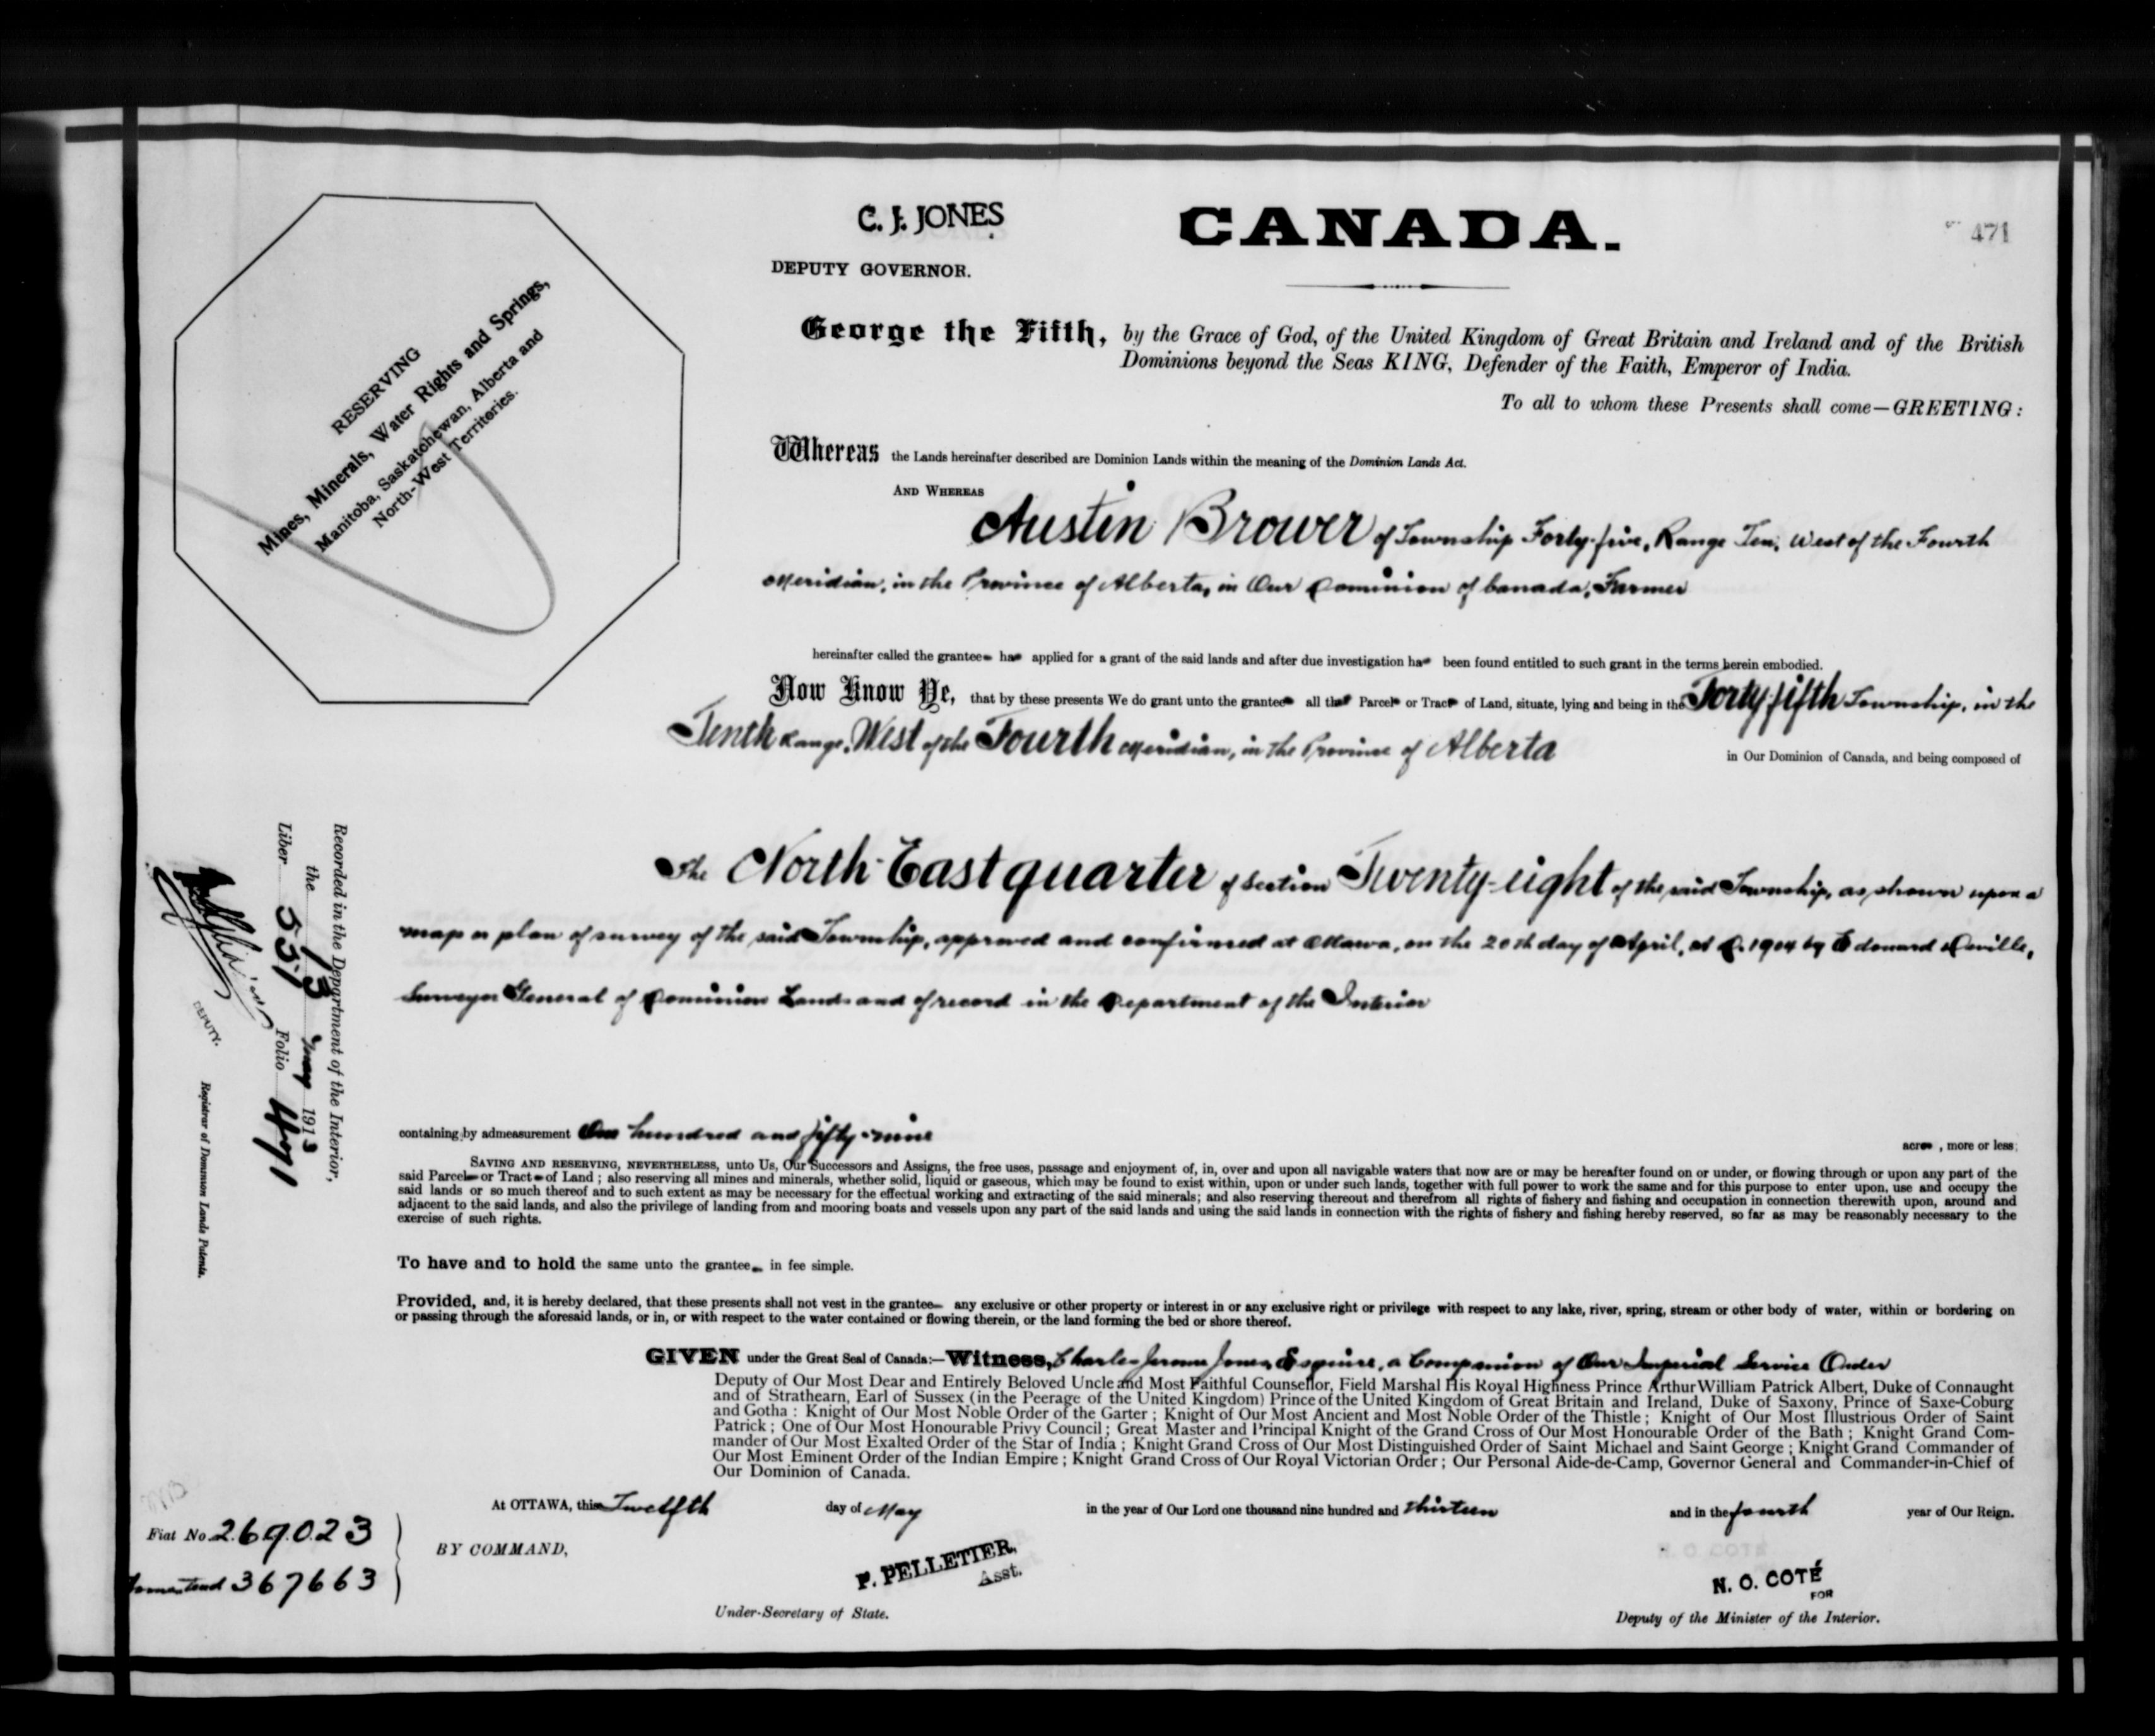 C. J. JONES
DEPUTY GOVERNOR.
CANADA.
471
RESERVING
Mines, Minerals, Water Rights and Springs,
Manitoba, Saskatchewan, Alberta and
North-West Territories.
George the Fifth, by the Grace of God, of the United Kingdom of Great Britain and Ireland and of the British
Dominions beyond the Seas KING, Defender of the Faith, Emperor of India.
To all to whom these Presents shall come—GREETING:
Whereas the Lands hereinafter described are Dominion Lands within the meaning of the Dominion Lands Act.
AND WHEREAS
Austin Brower of Township Forty-five, Range Ten, West of the Fourth
Meridian, in the Province of Alberta, in Our Dominion of Canada, Farmer
hereinafter called the grantee has applied for a grant of the said lands and after due investigation has been found entitled to such grant in the terms herein embodied.
Now Know Ye, that by these presents We do grant unto the grantee all that Parcel or Tract of Land, situate, lying and being in the Forty-fifth Township, in the
Tenth Range, West of the Fourth Meridian, in the Province of Alberta
in Our Dominion of Canada, and being composed of
The North-East quarter of Section Twenty-eight of the said Township, as shown upon a
map or plan of survey of the said Township, approved and confirmed at Ottawa, on the 20th day of April, A.D. 1904 by Edouard Deville,
Surveyor General of Dominion Lands and of record in the Department of the Interior
Recorded in the Department of the Interior,
the 13 May 1913
Liber 557 Folio 471
DEPUTY.
Registrar of Dominion Lands Patents.
containing by admeasurement One hundred and fifty-nine acres, more or less;
SAVING AND RESERVING, NEVERTHELESS, unto Us, Our Successors and Assigns, the free uses, passage and enjoyment of, in, over and upon all navigable waters that now are or may be hereafter found on or under, or flowing through or upon any part of the
said Parcel or Tract of Land; also reserving all mines and minerals, whether solid, liquid or gaseous, which may be found to exist within, upon or under such lands, together with full power to work the same and for this purpose to enter upon, use and occupy the
said lands or so much thereof and to such extent as may be necessary for the effectual working and extracting of the said minerals; and also reserving thereout and therefrom all rights of fishery and fishing and occupation in connection therewith upon, around and
adjacent to the said lands, and also the privilege of landing from and mooring boats and vessels upon any part of the said lands and using the said lands in connection with the rights of fishery and fishing hereby reserved, so far as may be reasonably necessary to the
exercise of such rights.
To have and to hold the same unto the grantee in fee simple.
Provided, and, it is hereby declared, that these presents shall not vest in the grantee any exclusive or other property or interest in or any exclusive right or privilege with respect to any lake, river, spring, stream or other body of water, within or bordering on
or passing through the aforesaid lands, or in, or with respect to the water contained or flowing therein, or the land forming the bed or shore thereof.
GIVEN under the Great Seal of Canada:—Witness, Charles Jerome Jones, Esquire, a Companion of Our Imperial Service Order
Deputy of Our Most Dear and Entirely Beloved Uncle and Most Faithful Counsellor, Field Marshal His Royal Highness Prince Arthur William Patrick Albert, Duke of Connaught
and of Strathearn, Earl of Sussex (in the Peerage of the United Kingdom) Prince of the United Kingdom of Great Britain and Ireland, Duke of Saxony, Prince of Saxe-Coburg
and Gotha: Knight of Our Most Noble Order of the Garter; Knight of Our Most Ancient and Most Noble Order of the Thistle; Knight of Our Most Illustrious Order of Saint
Patrick; One of Our Most Honourable Privy Council; Great Master and Principal Knight of the Grand Cross of Our Most Honourable Order of the Bath; Knight Grand Com-
mander of Our Most Exalted Order of the Star of India; Knight Grand Cross of Our Most Distinguished Order of Saint Michael and Saint George; Knight Grand Commander of
Our Most Eminent Order of the Indian Empire; Knight Grand Cross of Our Royal Victorian Order; Our Personal Aide-de-Camp, Governor General and Commander-in-Chief of
Our Dominion of Canada.
At OTTAWA, this Twelfth day of May in the year of Our Lord one thousand nine hundred and thirteen and in the fourth year of Our Reign.
Fiat No. 269023
Homestead 367663
BY COMMAND,
P. PELLETIER,
Asst.
Under-Secretary of State.
N. O. COTÉ
FOR
Deputy of the Minister of the Interior.